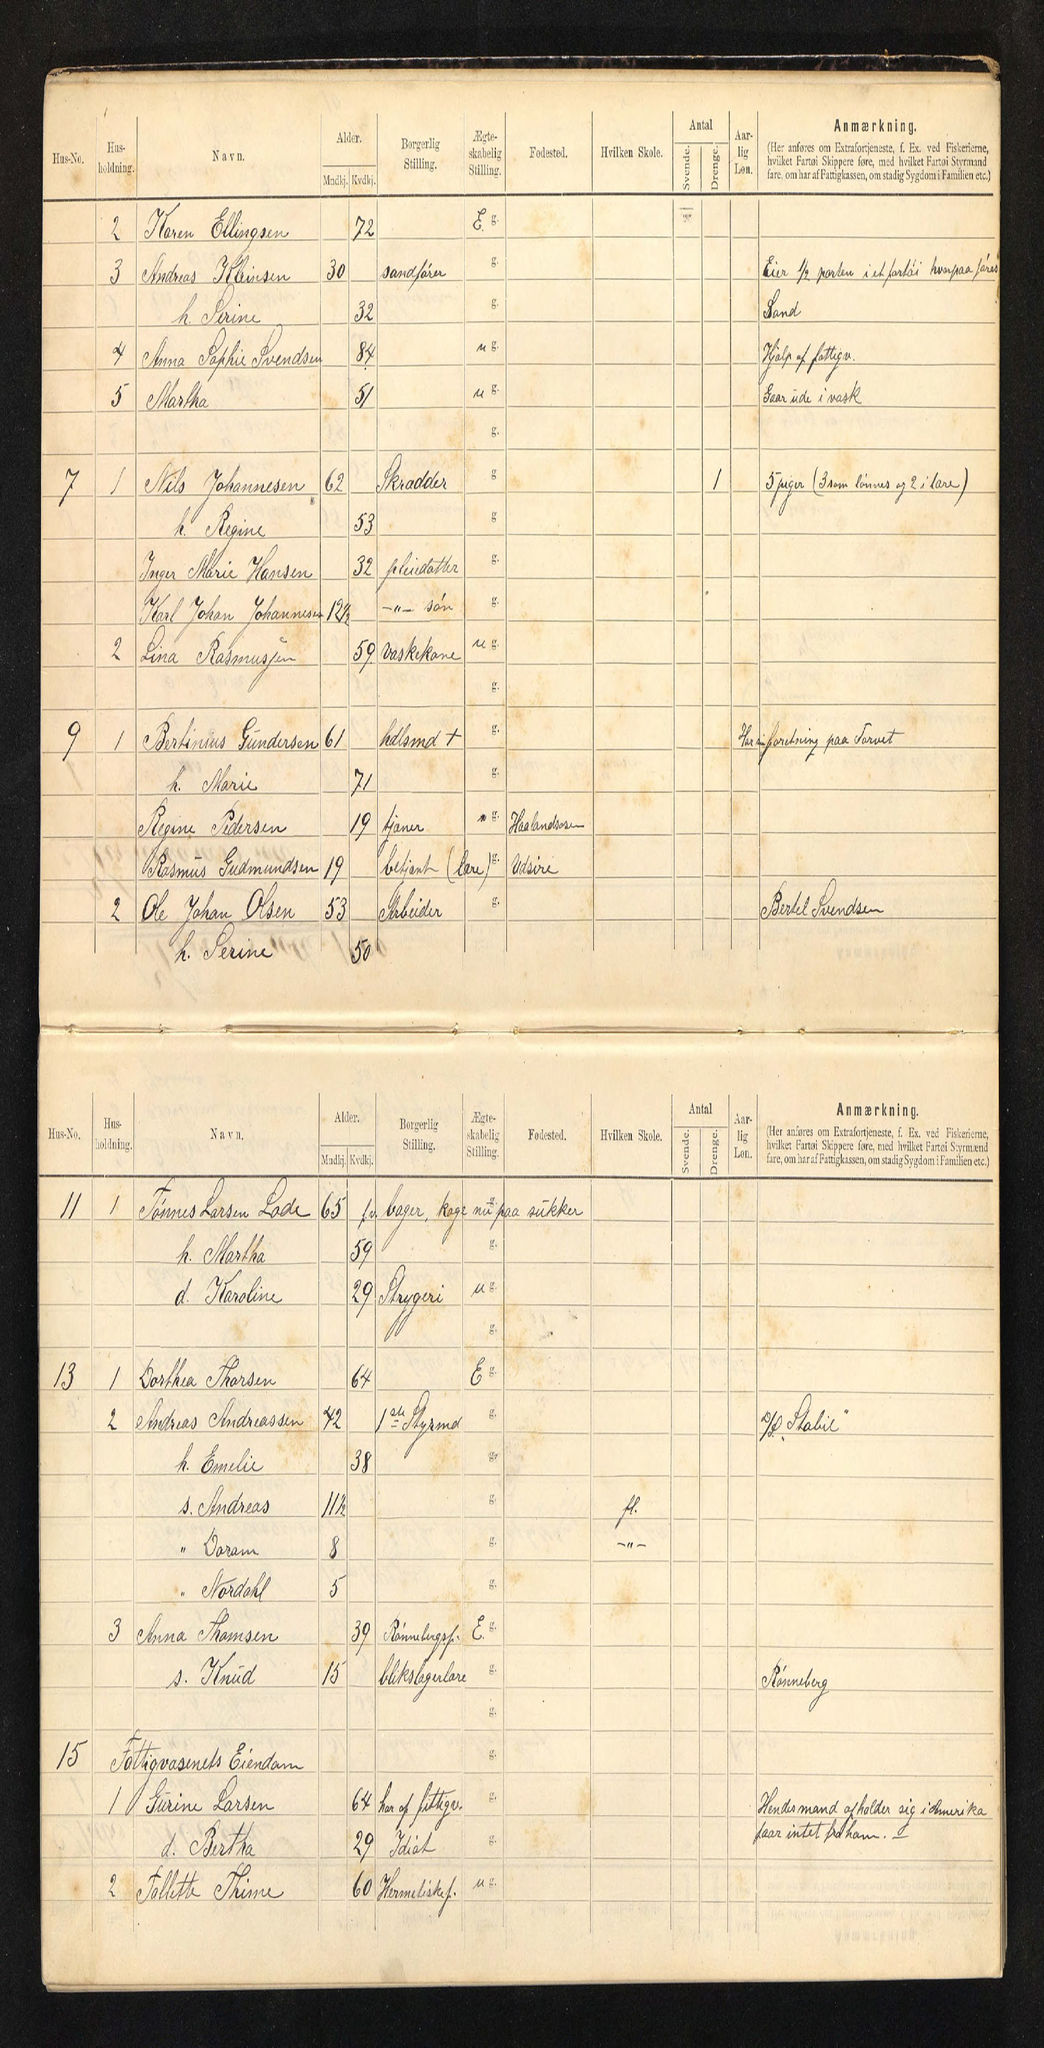 Hus-No. Hus-holdning. Navn. Alder. Mndkj. Kvdkj. Borgerlig Stilling. Ægte-skabelig Stilling. Fødested. Hvilken Skole. Antal Svende. Drenge. Aar-lig Løn. Anmærkning.
(Her anføres om Extrafortjeneste, f. Ex. ved Fiskerierne,
hvilket Fartøi Skippere føre, med hvilket Fartøi Styrmænd
fare, om har af Fattigkassen, om stadig Sygdom i Familien etc.)
2 Karen Ellingsen 72 E. g.
3 Andreas Kleinsen 30 sandfører g. Eier 1/2 parten i et fartøi hvorpaa føres
h. Serine 32 g. Sand
4 Anna Sophie Svendsen 84 u g. Hjælp af fattigv.
5 Martha 51 u g. Gaar ude i vask
g.
7 1 Nils Johannesen 62 Skrædder g 1 5 piger (3 som lønnes og 2 i lære)
h. Regine 53 g
Inger Marie Hansen 32 pleiedatter g.
Karl Johan Johannesen 12 1/2 -"- søn g.
2 Lina Rasmussen 59 Vaskekone u g.
g.
9 1 Bertinius Gundersen 61 hdlsmd + g. Har sin forretning paa Torvet
h. Marie 71 g.
Regine Pedersen 19 tjener g. Haalandsosen
Rasmus Gudmundsen 19 betjent (lære) g. Udsire
2 Ole Johan Olsen 53 Arbeider g. Bertel Svendsen
h. Serine 50
Hus-No. Hus-holdning. Navn. Alder. Mndkj. Kvdkj. Borgerlig Stilling. Ægte-skabelig Stilling. Fødested. Hvilken Skole. Antal Svende. Drenge. Aar-lig Løn. Anmærkning.
(Her anføres om Extrafortjeneste, f. Ex. ved Fiskerierne,
hvilket Fartøi Skippere føre, med hvilket Fartøi Styrmænd
fare, om har af Fattigkassen, om stadig Sygdom i Familien etc.)
11 1 Tønnes Larsen Lode 65 fv. bager, koge nu paa sukker g.
h. Martha 59 g.
d. Karoline 29 Strygeri u g.
g.
13 1 Dorthea Thorsen 64 E g.
2 Andreas Andreassen 42 1ste Styrmd g. D/S "Stabil"
h. Emelie 38 g.
s. Andreas 11 1/2 g. fl.
" Doram 8 g. -"-
" Nordahl 5 g.
3 Anna Thomsen 39 Rønnebergsf. E. g.
s. Knud 15 blikslagerlære g. Rønneberg
g.
15 Fattigvæsenets Eiendom g.
1 Gurine Larsen 64 har af fattigv. g. Hendes mand opholder sig i Amerika
d. Bertha 29 Idiot g. faar intet fra ham.
2 Tallette Thime 60 Hermetiskf. u g.